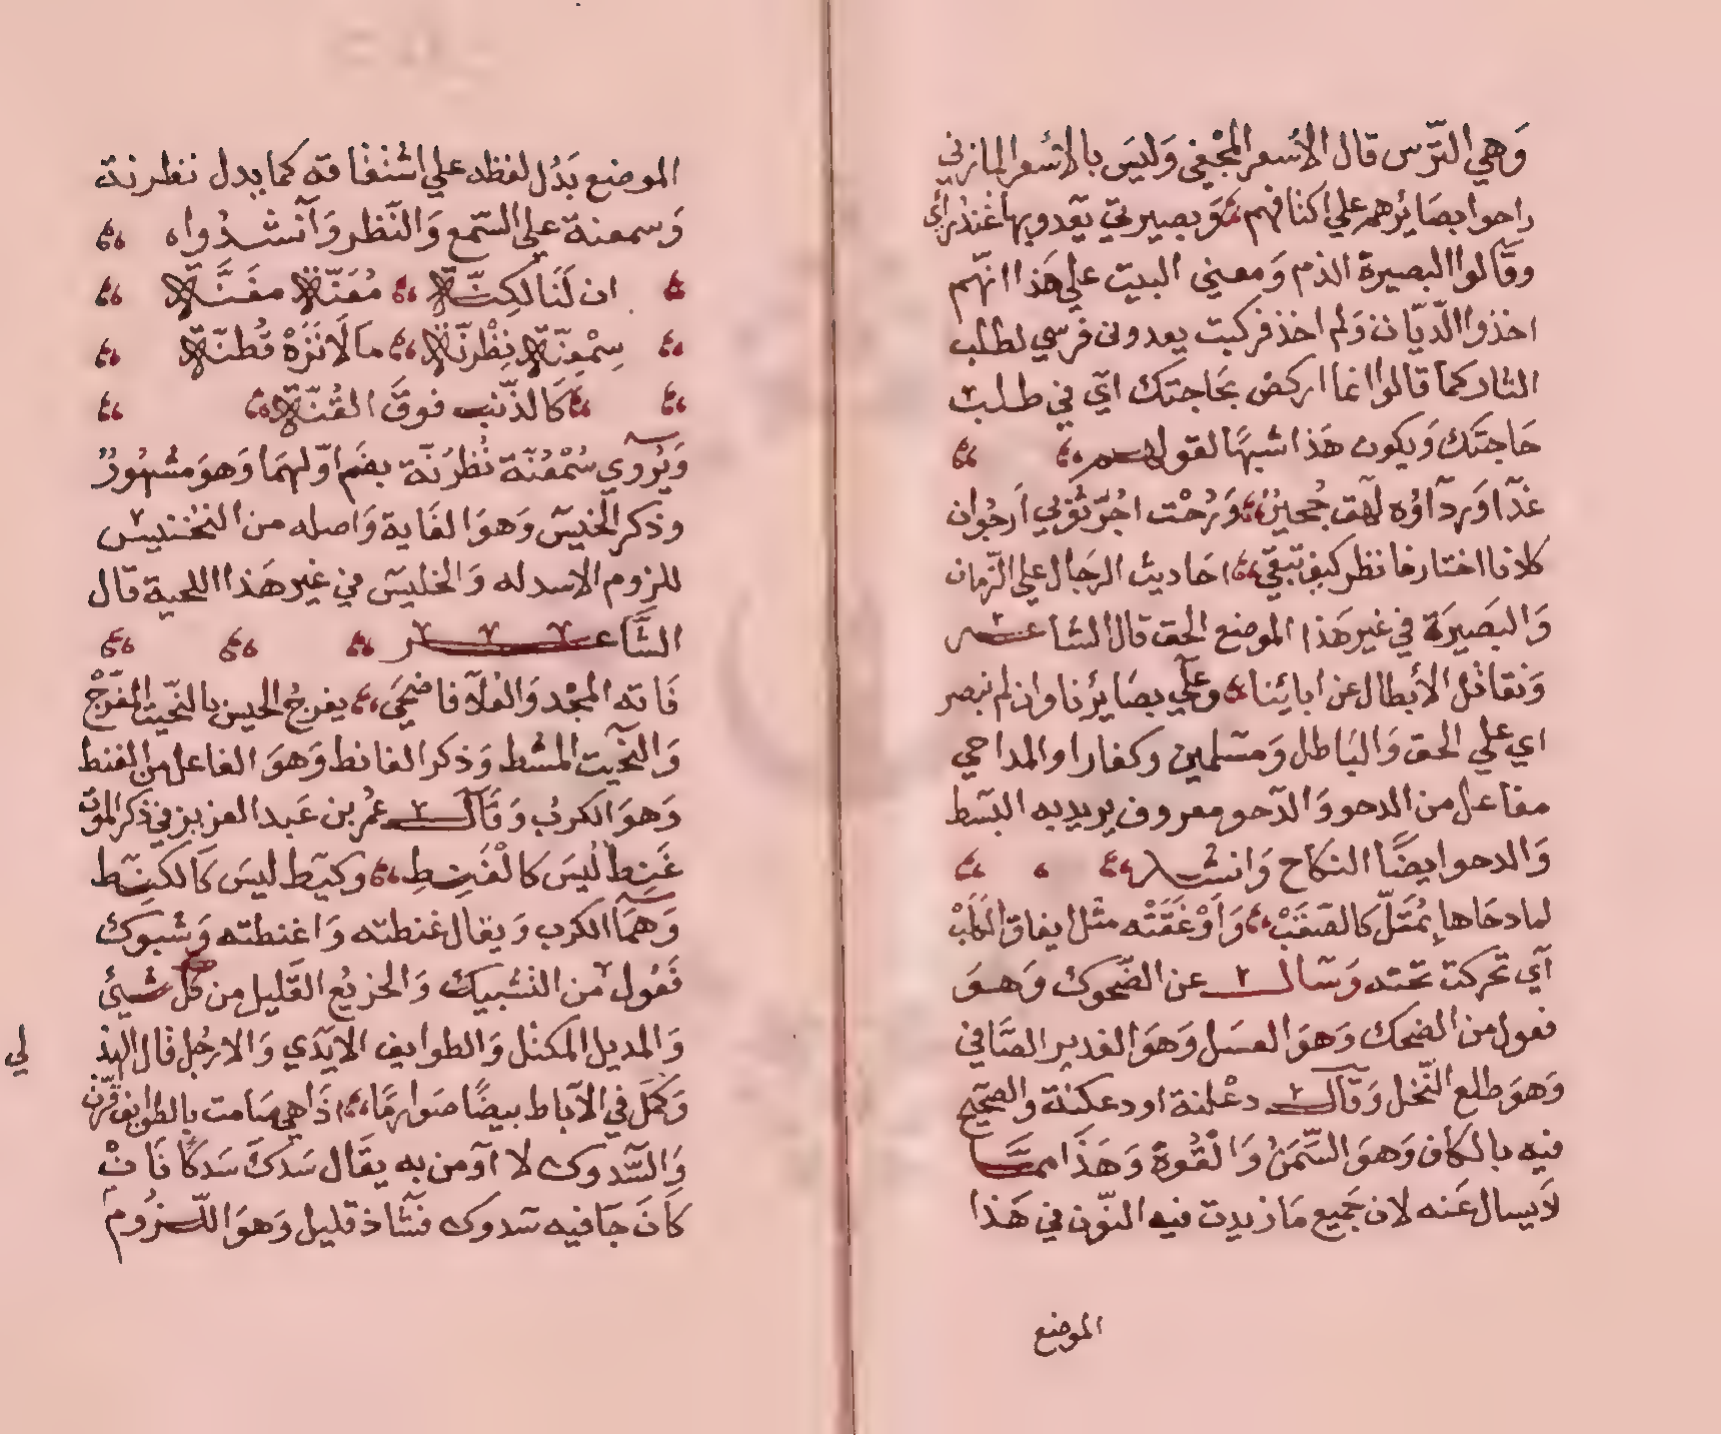 وَهي التّرس قال الأسعر الجُعْفي وَليسَ بالاسعر المازني
راحوا بصَائرهم علي اكتافهم وَبصيرتي يَعدو بها عَتد وأي
وقَالوا البصيرة الدم وَمعني البيت علي هَذا انّهم
اخذوا الدّيّات وَلم اخذ فركبت يعدوني فرسي لطلب
الثار كما قالوا انما اركض بحَاجتك اَي في طلب
حَاجتك وَيكون هَذا شبهًا لقولهم
غدَا وَردَاؤه لهق جُحين وَرُحْت اجُرّ ثوبي اَرجُوان
كلانا اختار فانظر كيف تبقي احَاديث الرجَال علي الزّمان
وَالبَصيرَة في غير هَذا الموضع الحق قال الشاعر
وَنقاتل الأبطال عن ابائنا وعلَي بصَائرنا وان لم نبصر
اي علي الحق وَالبَاطل وَمسَلمين وكفارا والمداحي
مفاعل من الدحو وَالدَحو معروف يريد به البسَط
وَالدحو ايضًا النكاح وَانشد
لما دحَاها بمُتَلّ كالصَقَبْ وَاَوْغَفَتْه مثل ايغاف الكَلبْ
اَي تحركت تحته وَسَال عن الضَحوك وَهوَ
فعول من الضحك وَهوَ العسَل وَهوَ الغدير الصَّافي
وَهوَ طلع النّخل وَقَال دعْلنة او دعكنة والصَحيح
فيه بالكاف وَهوَ السّمَنُ وَالْقُوة وَهَذَا ممَّا
لَا يسال عَنه لان جَميع مَا زيدت فيه النّون في هَذا
الموضع
الموضع يَدُل لفظه علي اشتقاقه كما يدل نظرنة
وَسمعنة علي السّمع وَالنّظر وَاَنشدُوا
ان لَنَا لكِنّة مُعَنّة مفَنَّة
سِمْعِنّة نِظْرنّة مَا لَا نَرَهْ تَظنّة
كَالذّئب فوقَ القُنّة
وَيُروَي سُمْعُنّة نُظرُنّة بضَم اوّلهمَا وَهوَ مشهُورٌ
وذكر الخيسَ وَهوَ الغَاية وَاصله من التخنيس
للزوم الاسد له وَالخليسَ في غير هَذا اللحية قَال
الشَّاعر
فَاته المجْد وَالعُلَآ فاضحَي يفرجُ الحيس بالنّحيت المفرّجْ
وَالنّحَيت المشط وَذكر الغانط وَهوَ الفاعل من الغنط
وَهوَ الكربُ وَقَال عمُر بن عَبد العزيز في ذكر الموت
غَنِط ليسَ كالْغَنِطِ وكيَط ليسَ كَالكنَط
وَهمَا الكرب وَيقال غنطته وَاغنطته وَشبَوك
فَعُول من التشبيك وَالخزيع القَليل من كُل شيئ
وَالمديل المكنْل وَالطوايف الايدَي وَالارجُل قَال الهذ
لي
وَكَمَلَ في الآباط بيضًا صَوارمًا اذَا هي صَامت بالطوايف قرت
وَالسَّدوك لا اوَمن به يقَال سَدكَ سَدكًا فَانْ
كَانَ جَا فيه سَدوك فشَاذ قليل وَهوَ اللّزُوم